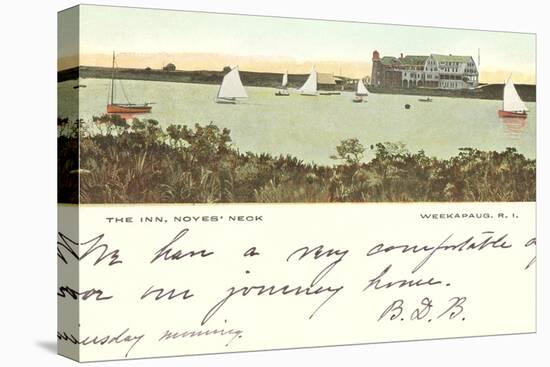 THE INN, NOYES' NECK WEEKAPAUG, R. I.
We have a very comfortable
our journey home.
B. D. B.
morning.